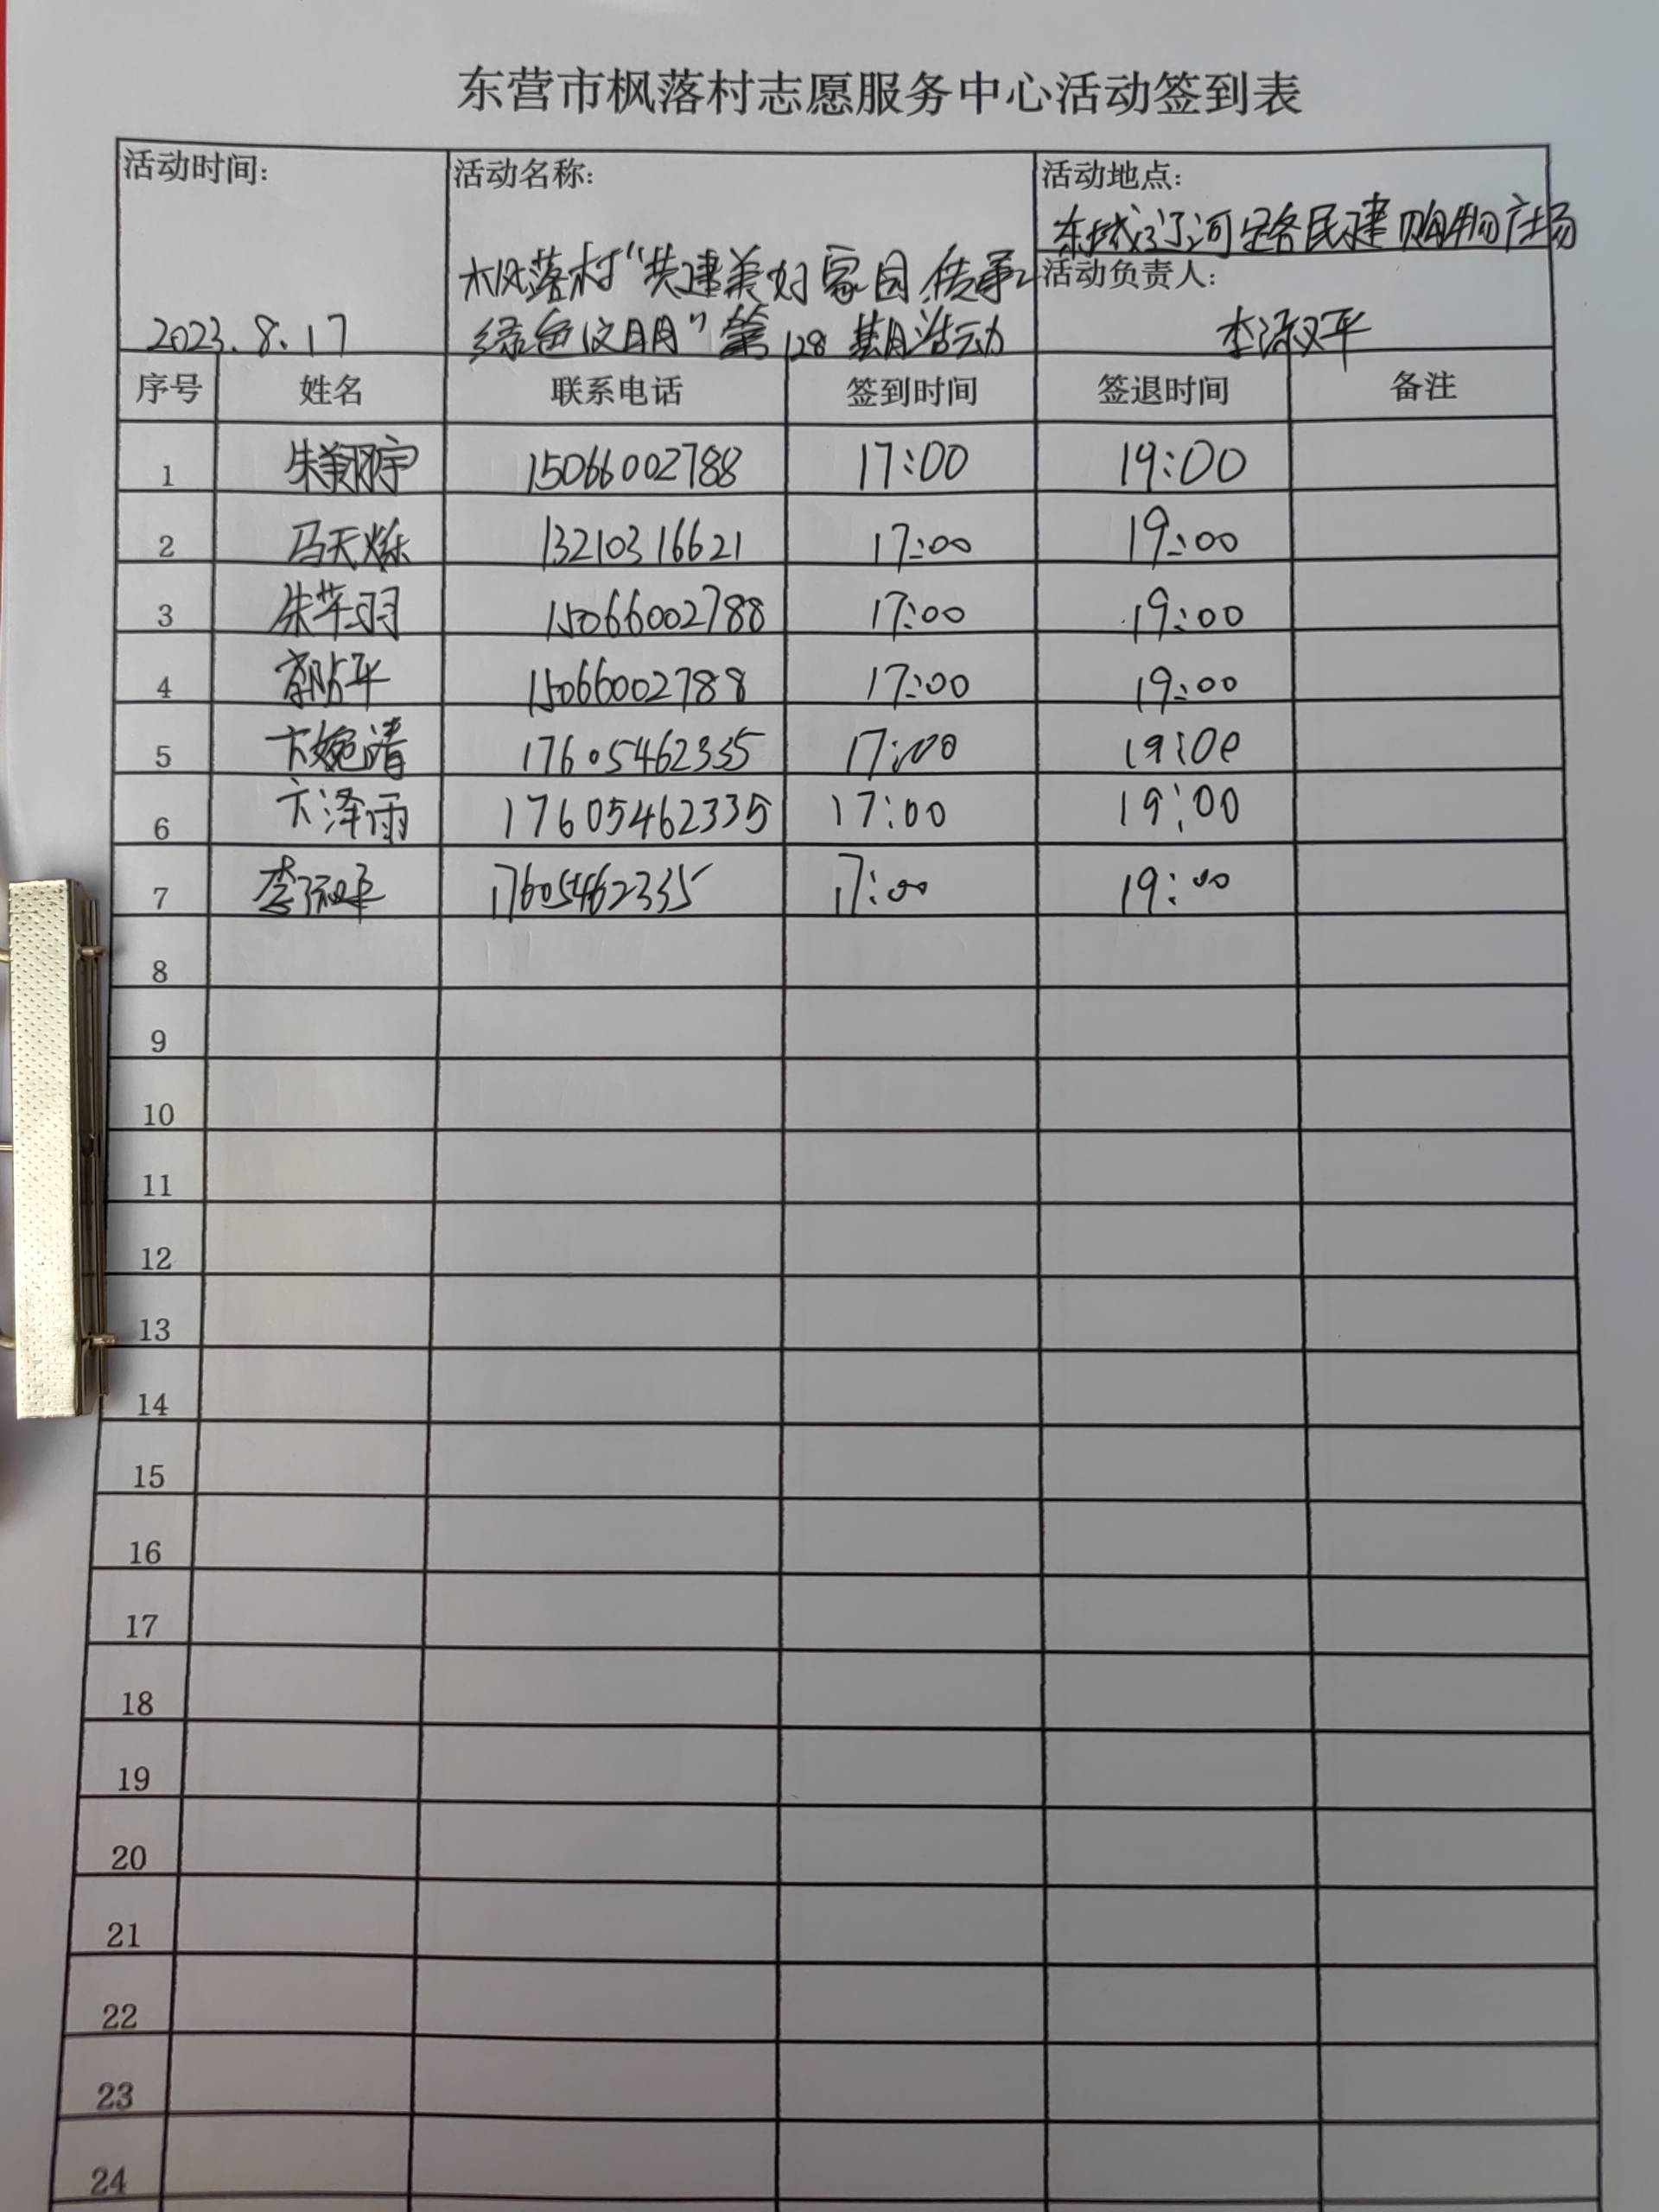 东营市枫落村志愿服务中心活动签到表
活动时间:
2023.8.17
活动名称:
枫落村“共建美好家园,传承
绿色文明”第128期活动
活动地点:
东城辽河路民建购物广场
活动负责人:
李淑平
序号 姓名 联系电话 签到时间 签退时间 备注
1 朱翔宇 15066002788 17:00 19:00
2 马天烁 13210316621 17:00 19:00
3 朱芊羽 15066002788 17:00 19:00
4 15066002788 17:00 19:00
5 卞婉清 17605462335 17:00 19:00
6 卞泽雨 17605462335 17:00 19:00
7 李淑平 17605462335 17:00 19:00
8
9
10
11
12
13
14
15
16
17
18
19
20
21
22
23
24